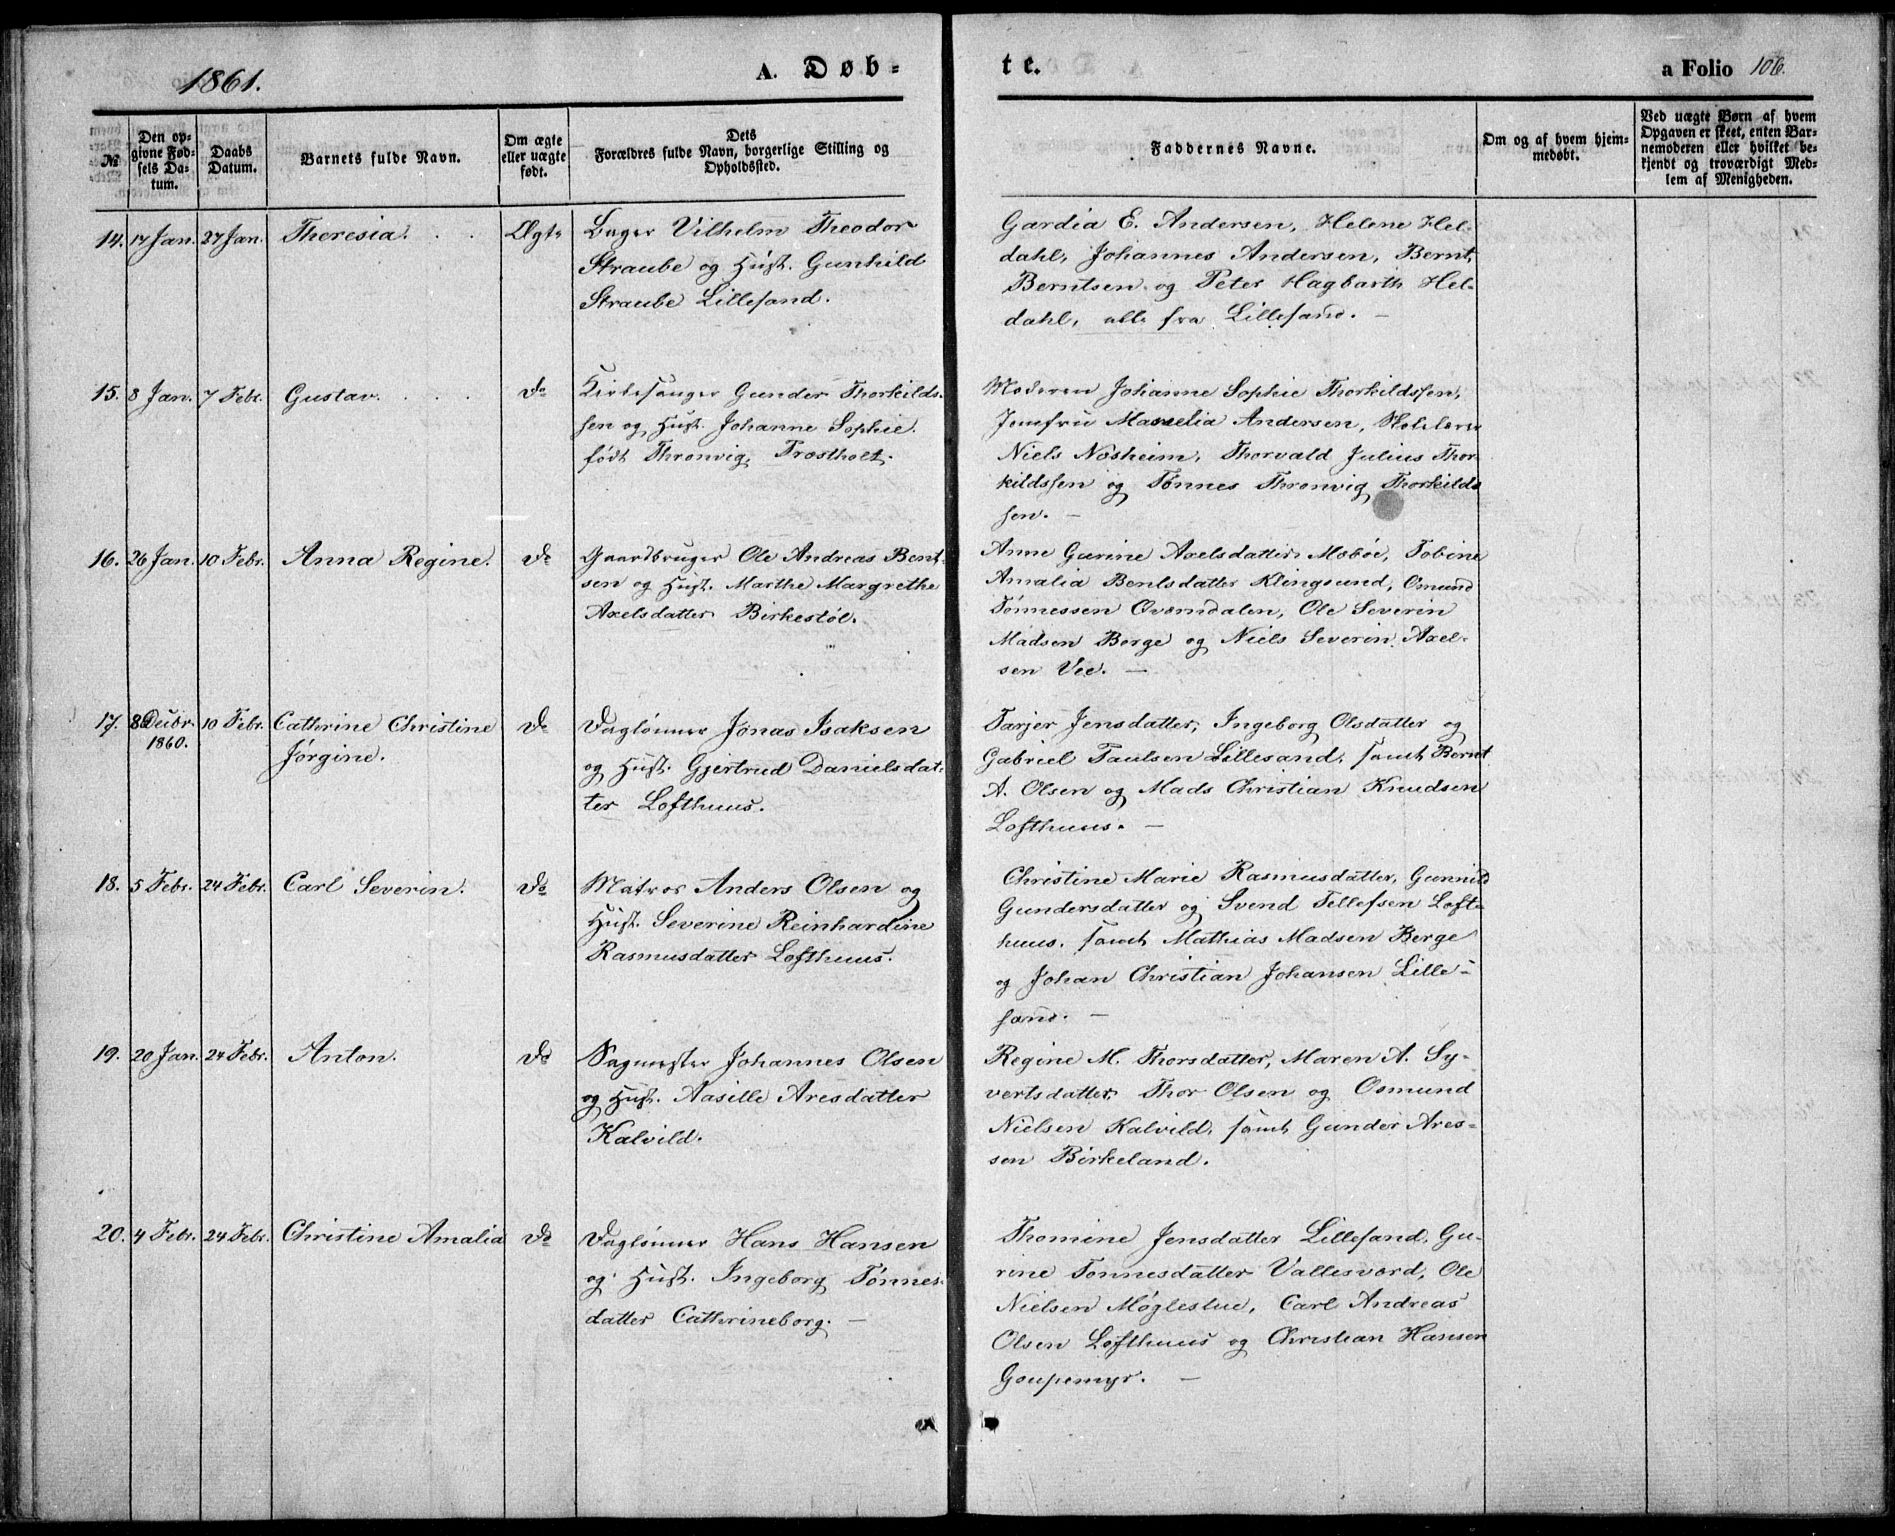 1861.
A. Døb-
te.
a Folio 106.
№
Den op-
givne Fød-
sels Da-
tum.
Daabs
Datum.
Barnets fulde Navn.
Om ægte
eller uægte
født.
Dets
Forældres fulde Navn, borgerlige Stilling og
Opholdssted.
Faddernes Navne.
Om og af hvem hjem-
medøbt.
Ved uægte Børn af hvem
Opgaven er skeet, enten Bar-
nemoderen eller hvilket be-
kjendt og troværdigt Med-
lem af Menigheden.
14. 17 Jan. 27 Jan. Theresia. Ægte
Bager Vilhelm Theodor
Straube og Hust. Gunhild
Straube Lillesand.
Gardia E. Andersen, Helene Hel-
dahl, Johannes Andersen, Bernt
Berntsen og Peter Hagbarth Hel-
dahl, alle fra Lillesand. —
15. 8 Jan. 7 Febr. Gustav. Do
Kirkesanger Gunder Thorkilds-
sen og Hust. Johanne Sophie
født Thronvig, Trostholt.
Moderen Johanne Sophie Thorkildssen,
Jomfru Andersen, Skolelærer
Niels Nøsheim, Thorvald Julius Thor-
kildssen og Tønnes Thronvig Thorkilds
sen. —
16. 26 Jan. 10 Febr. Anna Regine. Do
Gaardbruger Ole Andreas Bent-
sen og Hust. Marthe Margrethe
Axelsdatter Birkestøl.
Anne Gurine Axelsdatter Møbøe, Tobine
Amalia Bentsdatter Klingsund, Omund
Tønnessen Øvomdalen, Ole Severin
Madsen Berge og Niels Severin Axel-
sen Vee. —
17. 8 Decbr. 10 Febr. Cathrine Christine Do
1860.
Jørgine.
Daglønner Jonas Isaksen
og Hust. Gjertrud Danielsdat-
ter Lofthuus.
Tarjer Jensdatter, Ingeborg Olsdatter og
Gabriel Paulsen Lillesand, samt Bernt
A. Olsen og Mads Christian Knudsen
Lofthuus. —
18. 5 Febr. 24 Febr. Carl Severin. Do
Matros Anders Olsen og
Hust. Severine Reinhardine
Rasmusdatter Lofthuus.
Christine Marie Rasmusdatter, Gunnild
Gundersdatter og Svend Tellefsen Loft-
huus, samt Mathias Madsen Berge
og Johan Christian Johansen Lille-
sand. —
19. 20 Jan. 24 Febr. Anton. Do
Sagmester Johannes Olsen
og Hust. Aasille Aresdatter
Kalvild.
Regine M. Thorsdatter, Maren A. Sy-
vertsdatter, Thor Olsen og Osmund
Nielsen Kalvild, samt Gunder Ares-
sen Birkeland.
20. 4 Febr. 24 Febr. Christine Amalia Do
Daglønner Hans Hansen
og Hust. Ingeborg Tønnes-
datter Cathrineborg. —
Thomine Jensdatter Lillesand, Gu-
rine Tonnesdatter Vallesværd, Ole
Nielsen Møglestue, Carl Andreas
Olsen Lofthuus og Christian Hansen
Goupemyr. —